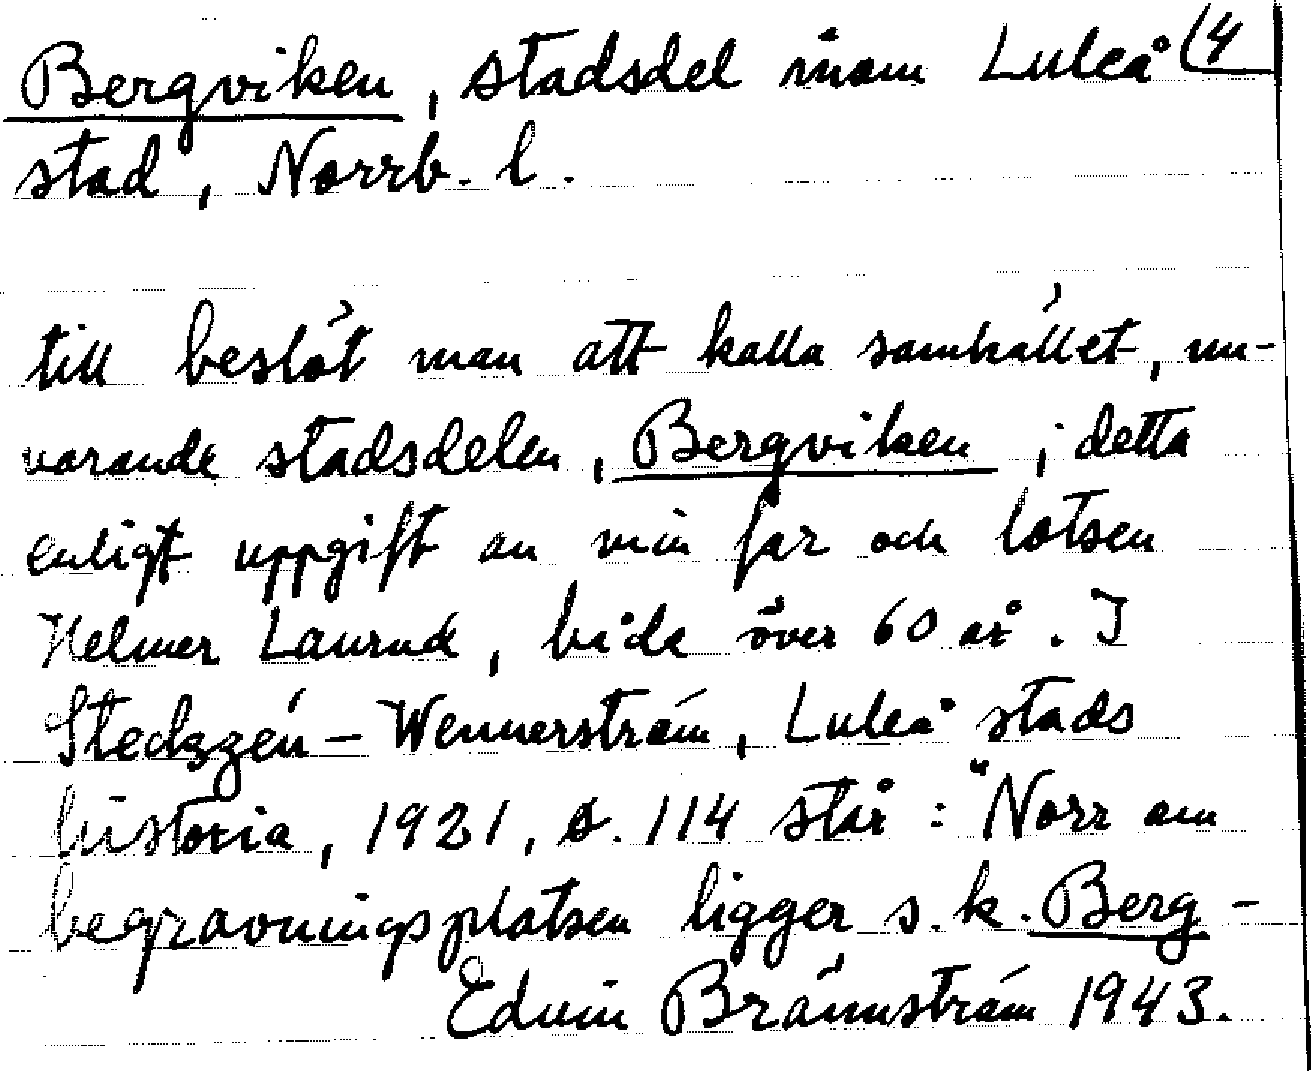 Bergviken, stadsdel inom Luleå (4
stad, Norrb. l.
till beslöt man att kalla samhället, nu-
varande stadsdelen, Bergviken; detta
enligt uppgift av min far och lotsen
Helmer Laurud, båda över 60 år. I
Steckzén - Wennerström, Luleå stads
historia, 1921, s. 114 står: "Norr om
begravningsplatsen ligger s. k. Berg-
Edvin Brännström 1943.